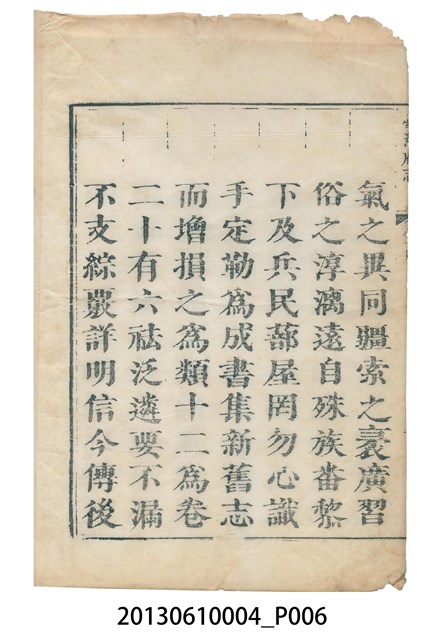 氣之異同疆索之袤廣習
俗之淳漓遠自殊族番黎
下及兵民蔀屋罔勿心識
手定勒為成書集新舊志
而增損之為類十二為卷
二十有六祛泛遴要不漏
不支綜覈詳明信今傳後
20130610004_P006